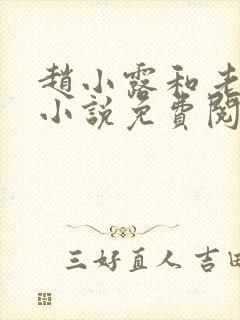 趙小露和老
小說免費閱
三好直人 吉田